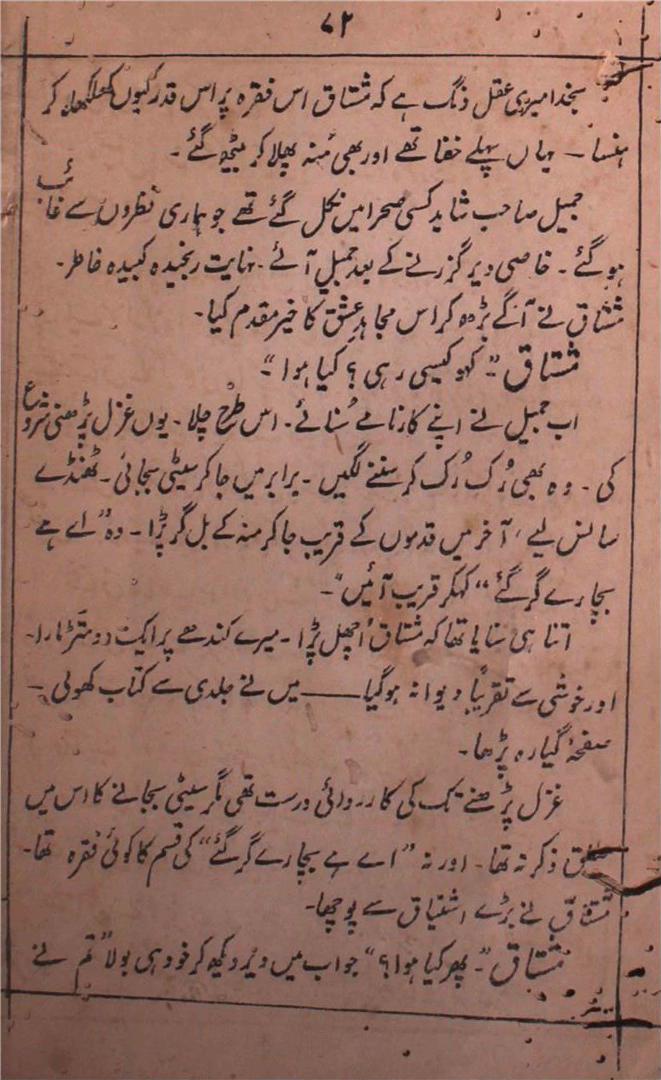 ۷۲
بخدا میری عقل دنگ ہے کہ مشتاق اس فقرہ پر اس قدر کیوں کھلکھلا کر
ہنسا – یہاں پہلے خفا تھے اور بھی مُنہ پھلا کر بیٹھ گئے ۔
جمیل صاحب شاید کسی صحرا میں نکل گئے تھے جو ہماری نظروں سے غائب
ہو گئے ۔ خاصی دیر گزرنے کے بعد جمیل آئے ۔ نہایت رنجیدہ کبیدہ خاطر ۔
مشتاق نے آگے بڑھ کر اس مجاہدِ عشق کا خیر مقدم کیا ۔
مشتاق ”۔ کہو کیسی رہی ؟ کیا ہوا “۔
اب جمیل نے اپنے کارنامے سُنائے ۔ اس طرح چلا ۔ یوں غزل پڑھنی شروع
کی ۔ وہ بھی رُک رُک کر سننے لگیں ۔ برابر میں جا کر سیٹی بجائی ۔ ٹھنڈے
سانس لیے ، آخر میں قدموں کے قریب جا کر منہ کے بل گر پڑا ۔ وہ ”اے ہے
بچارے گر گئے “ کہکر قریب آئیں “۔
اتنا ہی سنایا تھا کہ مشتاق اُچھل پڑا ۔ میرے کندھے پر ایک دوہتّڑ مارا ۔
اور خوشی سے تقریباً دیوانہ ہو گیا —— میں نے جلدی سے کتاب کھولی –
صفحۂ گیارہ پڑھا ۔
غزل پڑھنے تک کی کارروائی درست تھی مگر سیٹی بجانے کا اس میں
مطلق ذکر نہ تھا ۔ اور نہ ”اے ہے بچارے گر گئے “ کی قسم کا کوئی فقرہ تھا ۔
مشتاق نے بڑے اشتیاق سے پوچھا ۔
مشتاق ”۔ پھر کیا ہوا ؟“ جواب میں دیر دیکھ کر خود ہی بولا ”تم نے